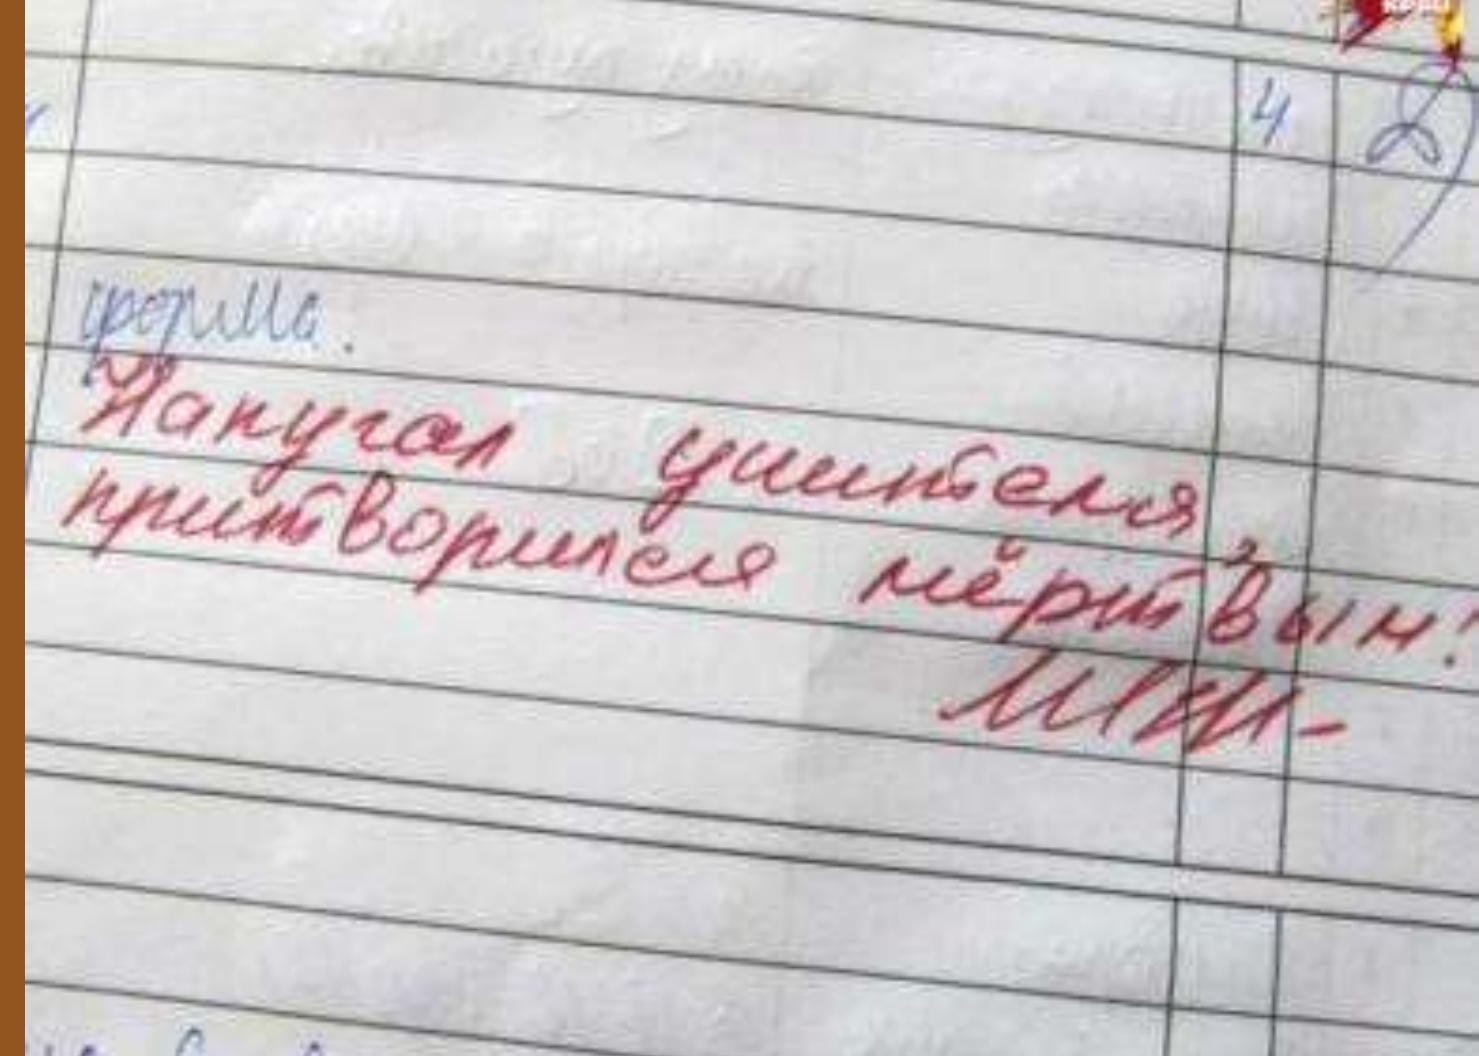 4
форма.
Напугал учителя,
притворился мёртвым!